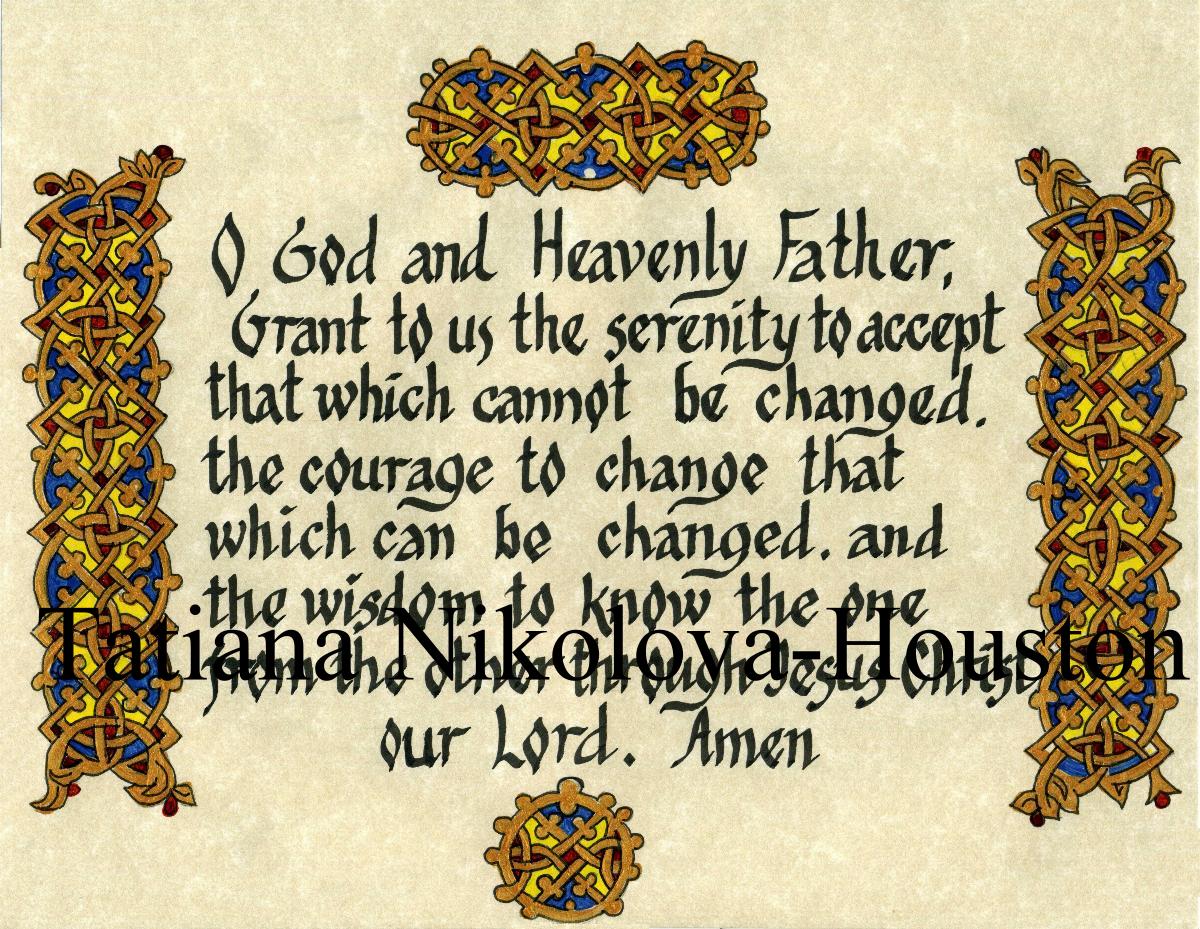 O God and Heavenly Father,
Grant to us the serenity to accept
that which cannot be changed.
the courage to change that
which can be changed. and
the wisdom to know the one
Tatiana Nikolova-Houston
from the other through Jesus Christ
our Lord. Amen